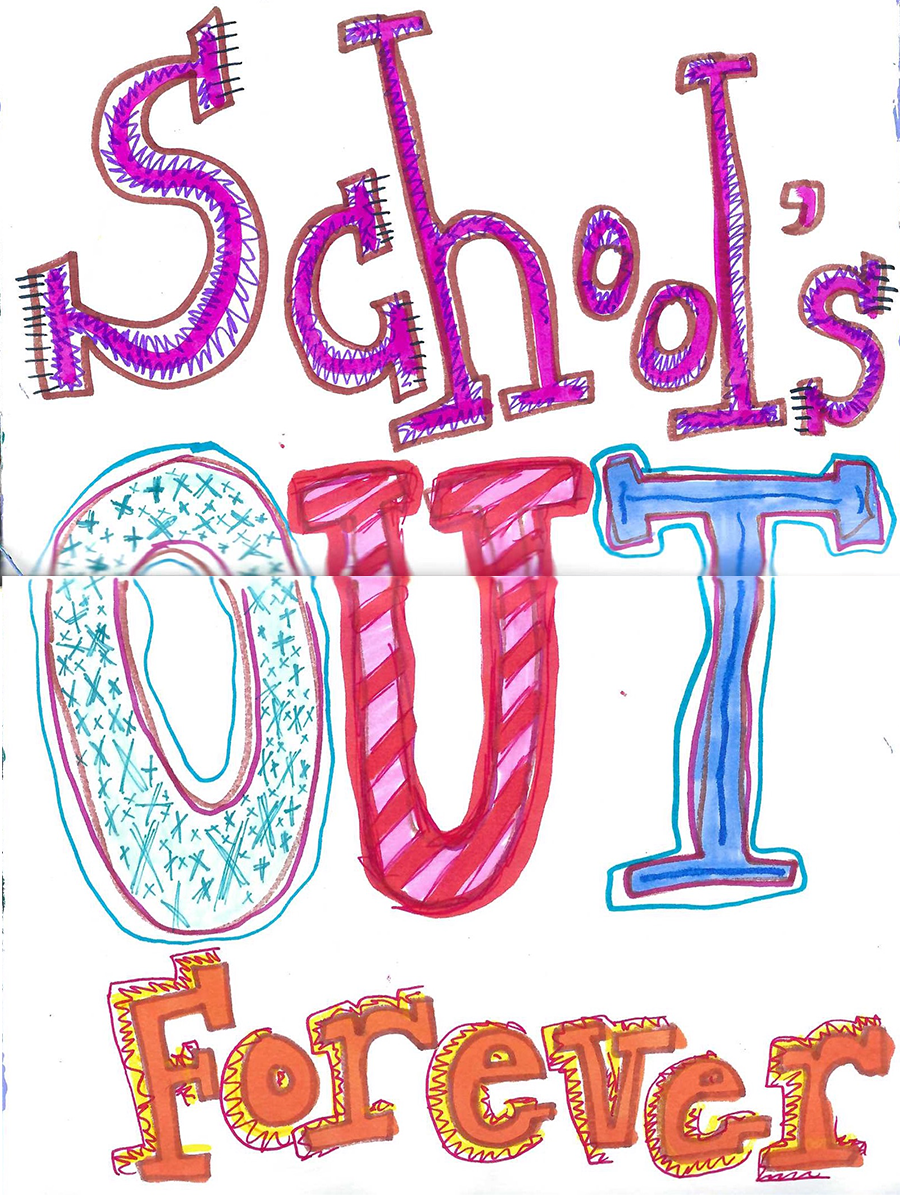 School's
OUT
Forever